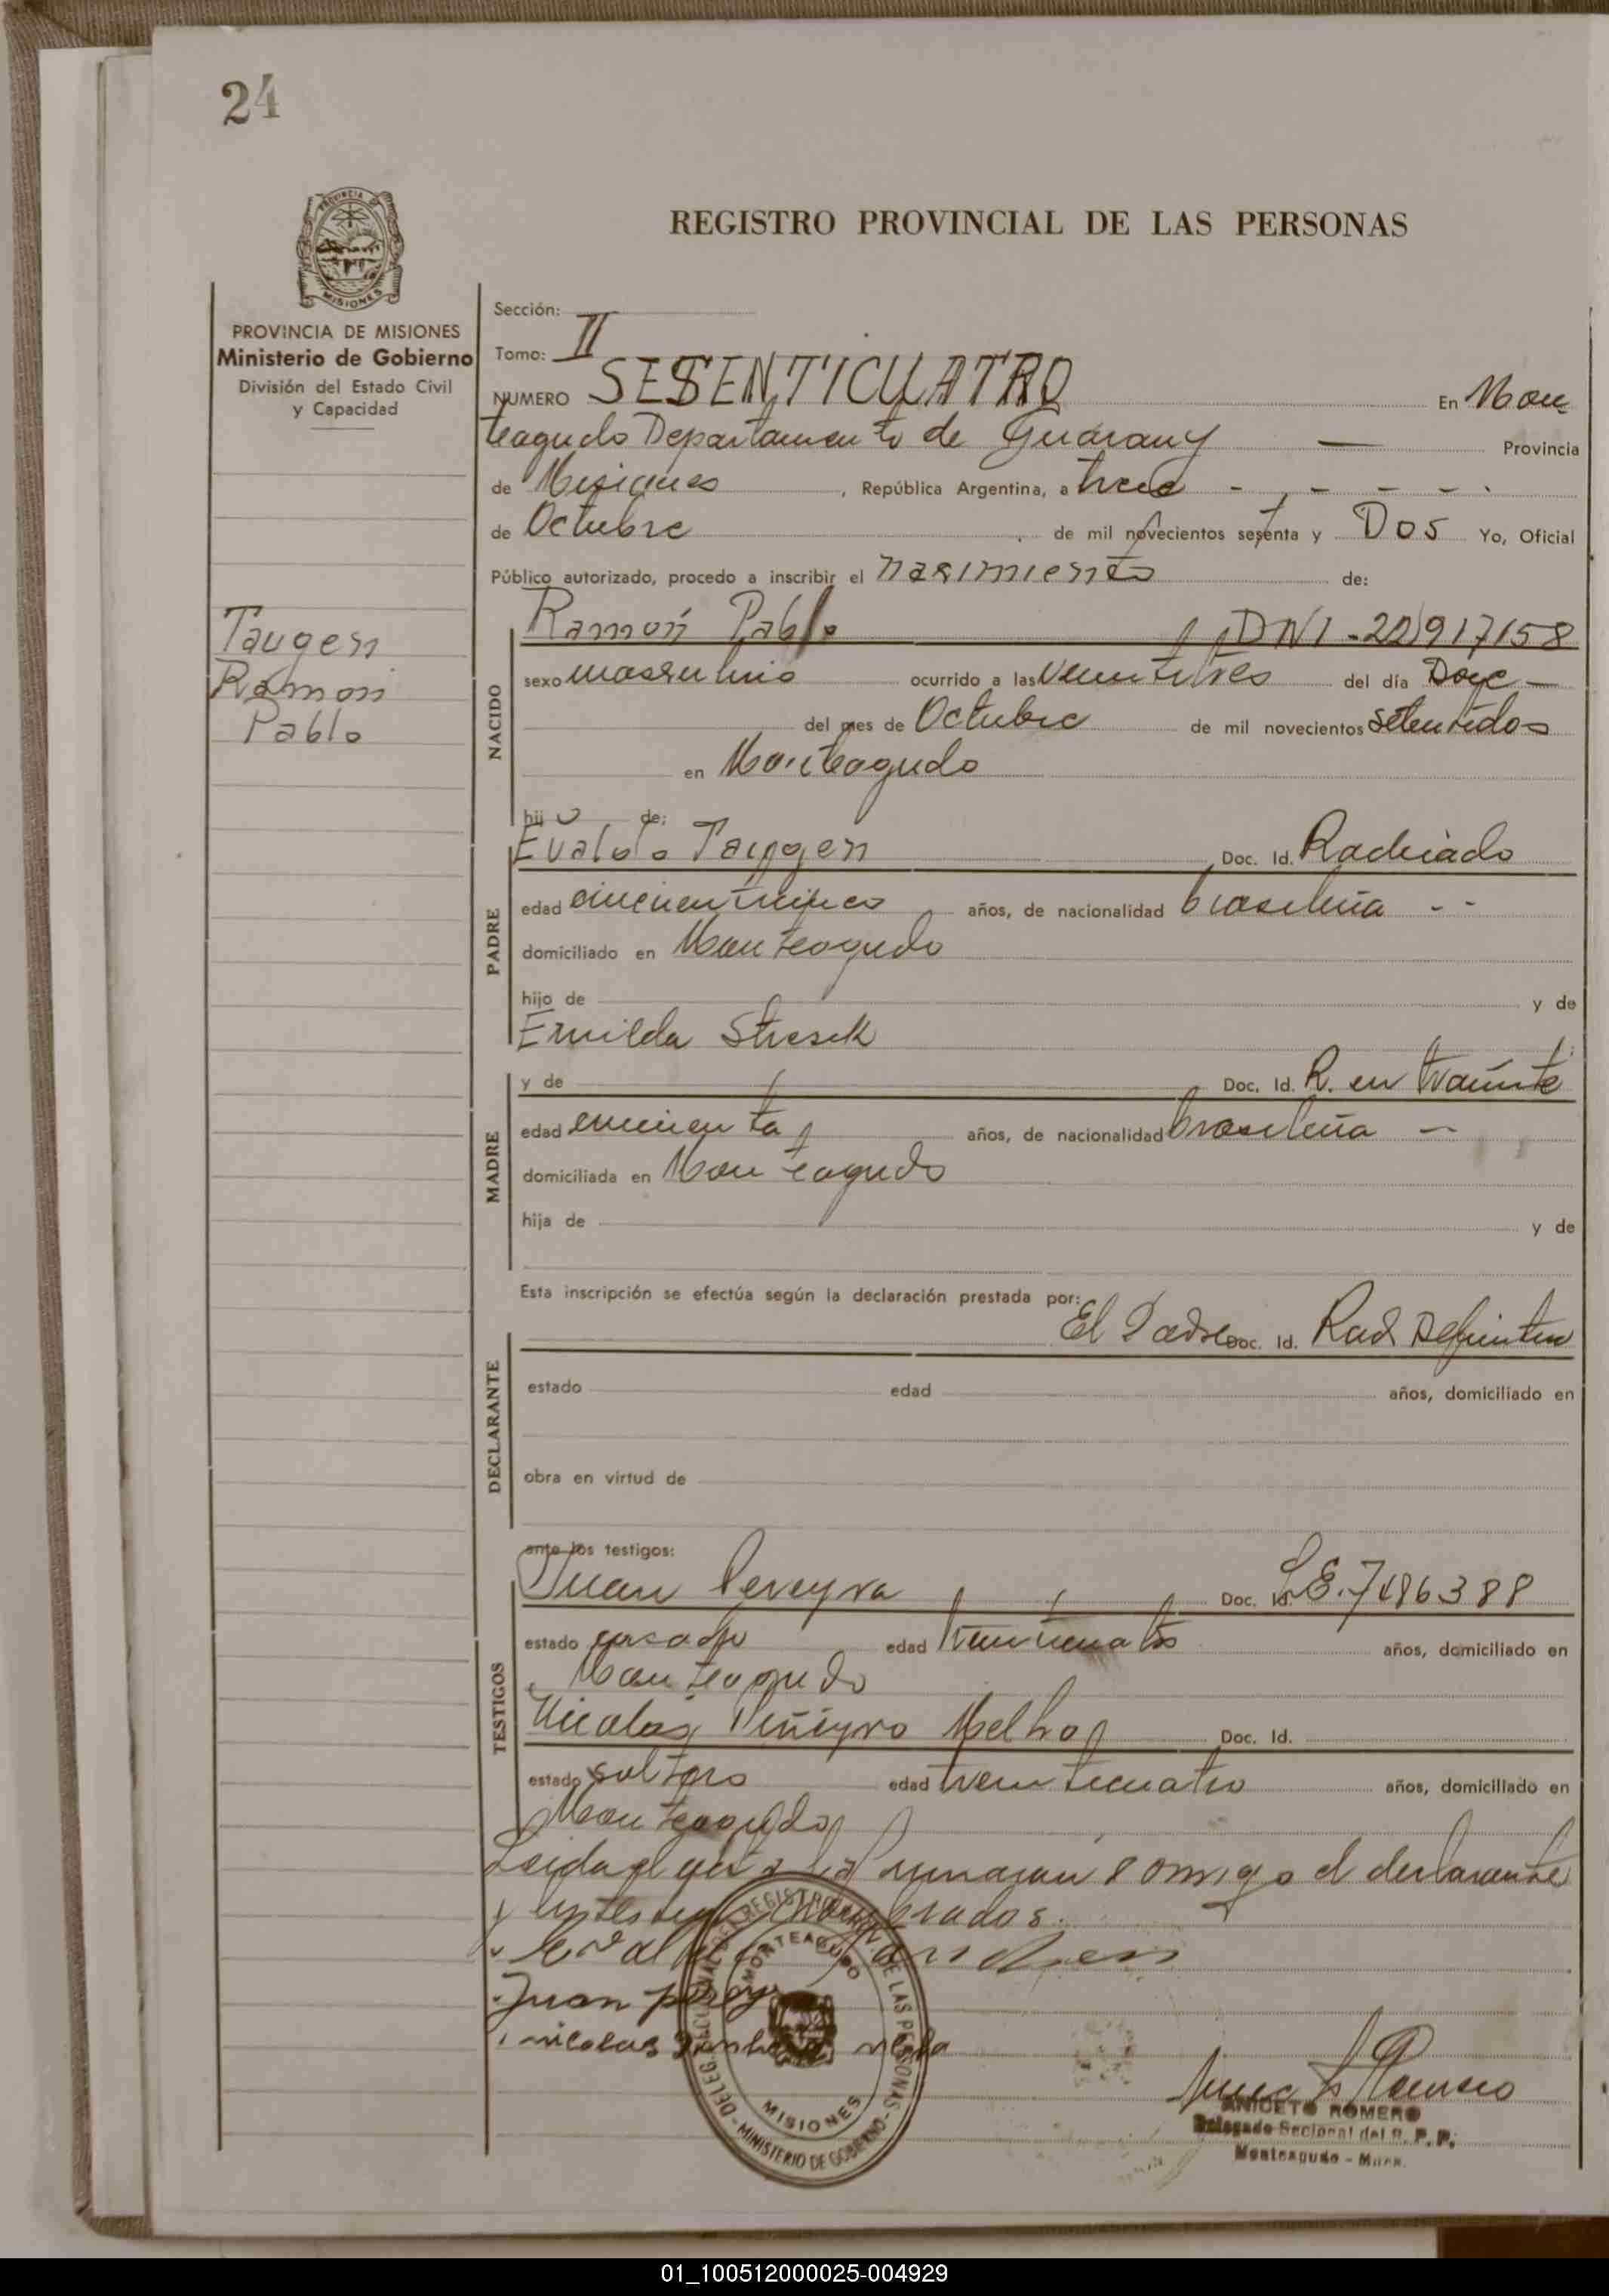 24
REGISTRO PROVINCIAL DE LAS PERSONAS
PROVINCIA DE MISIONES
Ministerio de Gobierno
División del Estado Civil
y Capacidad
Sección:
Tomo: II
NUMERO SESENTICUATRO En Mon
teagudo Departamento de Guarany — Provincia
de Misiones, República Argentina, a trece - - - -
de Octubre de mil novecientos setenta y Dos Yo, Oficial
Público autorizado, procedo a inscribir el nasimiento de:
Taugen
Ramon
Pablo
NACIDO
Ramón Pablo DNI-22917158
sexo masculino ocurrido a las veintitres del día Doce —
del mes de Octubre de mil novecientos setentidos
en Monteagudo
hijo de:
PADRE
Evaldo Taugen Doc. Id. Radicado
edad cincuenticinco años, de nacionalidad brasileña - -
domiciliado en Monteagudo
hijo de y de
Ermilda Stresek
MADRE
y de Doc. Id. R. en tramite
edad cincuenta años, de nacionalidad brasileña —
domiciliada en Monteagudo
hija de y de
Esta inscripción se efectúa según la declaración prestada por:
DECLARANTE
El Padre Doc. Id. Rad
estado edad años, domiciliado en
obra en virtud de
ante los testigos:
TESTIGOS
Juan Pereyra Doc. Id. L.E. 7486388
estado casado edad años, domiciliado en
Monteagudo
Nicolás Piñeyro Melho Doc. Id.
estado soltero edad treinticuatro años, domiciliado en
Monteagudo
Leida el acta la conmigo el declarante
y los testigos nombrados.
Juan
nicolas
DELEG. SECCIONAL DEL REGISTRO PROV. DE LAS PERSONAS - MINISTERIO DE GOBIERNO -
MONTEAGUDO
MISIONES
ANICETO ROMERO
Delegado Seccional del R. P. P.
Monteagudo - Mnes.
01_100512000025-004929